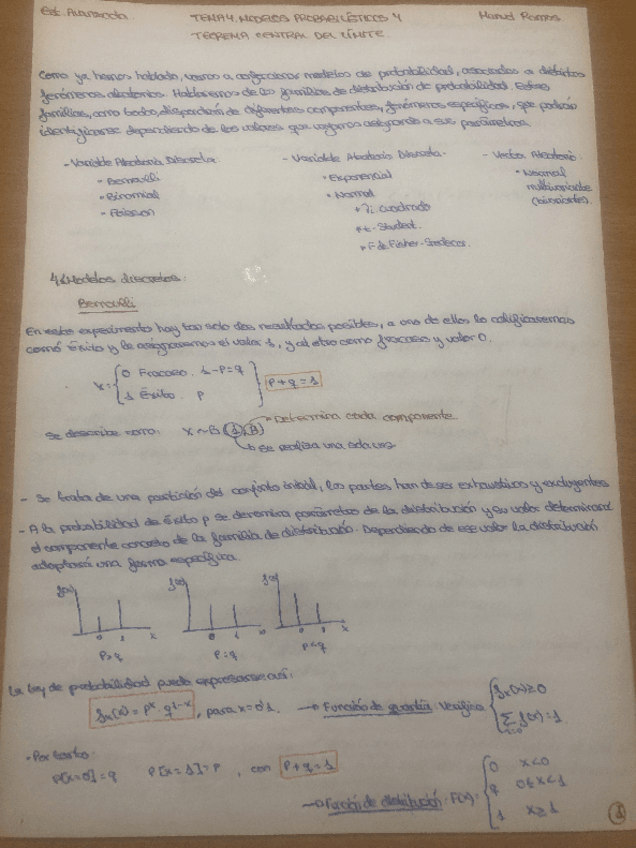 Est. Avanzada. TEMA 4. MODELOS PROBABILÍSTICOS Y Manuel Ramos
TEOREMA CENTRAL DEL LÍMITE.
Como ya hemos hablado, vamos a modelos de probabilidad, asociados a distintos
fenómenos aleatorios. Hablaremos de las familias de distribución de probabilidad. Estas
familias, como todo, dispondrán de diferentes componentes, fenómenos específicos, que podrán
identificarse dependiendo de los valores que vayamos asignando a sus parámetros.
- Variable Aleatoria Discreta: - Variable Aleatoria Discreta. - Vector Aleatorio:
• Bernoulli • Exponencial • Normal
• Binomial • Normal multivariante
• Poisson + Ji cuadrado (bivariante).
+ t-Student.
+ F de Fisher-Snedecor.
4.1 Modelos discretos:
Bernoulli
En este experimento hay tan solo dos resultados posibles, a uno de ellos lo calificaremos
como Éxito y le asignaremos el valor 1, y al otro como fracaso y valor 0.
X= { 0 Fracaso. 1-P=q
1 Éxito. P } P+q=1
Se describe como: X~B(1,P) → Determina cada componente.
↳ Se realiza una sola vez
- Se trata de una partición del conjunto inicial, las partes han de ser exhaustivas y excluyentes
- A la probabilidad de Éxito p se denomina parámetro de la distribución y su valor determinará
el componente concreto de la familia de distribución. Dependiendo de ese valor la distribución
adoptará una forma específica.
f(x) f(x) f(x)
0 1 x 0 1 x 0 1 x
P>q P=q P<q
La ley de probabilidad puede expresarse así:
fx(x) = p^x · q^1-x, para x=0,1. → Función de cuantía: verifica { fx(x)≥0
∑ f(x)=1
• Por tanto:
P[x=0]=q P[x=1]=P, con P+q=1
→ Función de distribución: F(x)= { 0 x<0
q 0≤x<1
1 x≥1
1